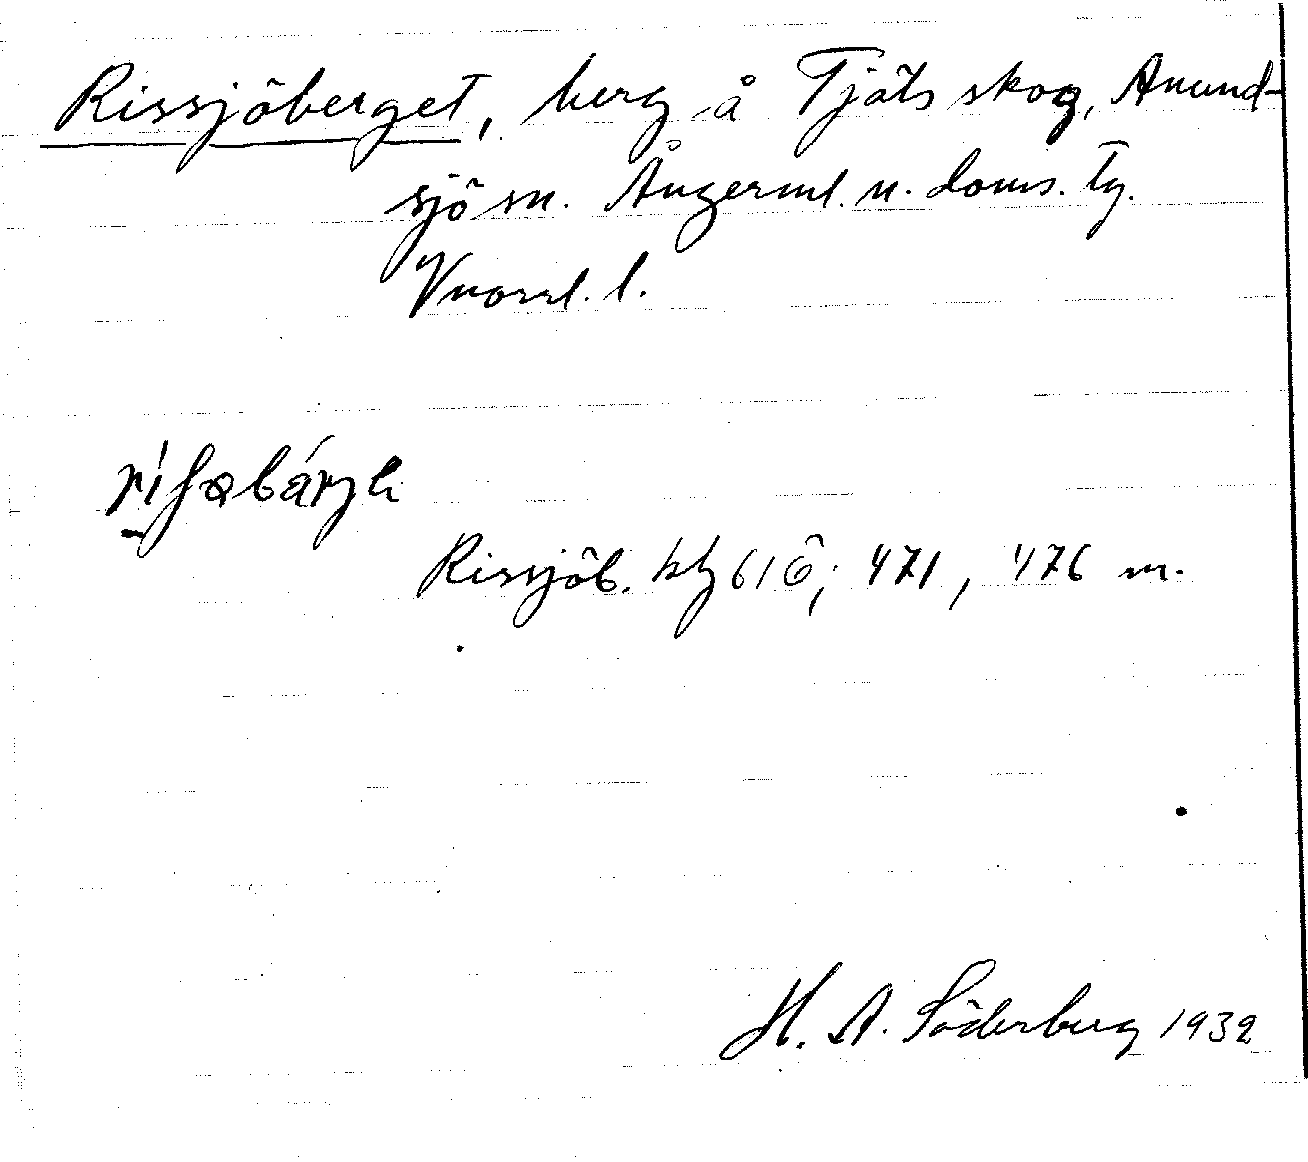 Rissjöberget, berg å Tjäls skog, Anund-
sjö sn. Ångerml. n. doms. tg.
Vnorrl. l.
Rissjöb. kbl 61 Ö; 471, 476 m.
H. A. Söderberg 1932